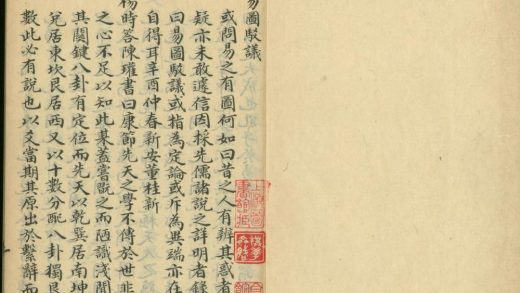 易圖駁議
或問易之有圖何如曰昔之人有辨其惑者
疑亦未敢遽信因採先儒諸說之詳明者錄
曰易圖駁議或指為定論或斥為異端亦在
自得耳辛酉仲春新安董桂新
楊時答陳瓘書曰康節先天之學不傳於世非
之心不足以知此某蓋嘗翫之而陋識淺聞
其關鍵八卦有定位而先天以乾巽居南坤
兌居東坎艮居西又以十數分配八卦獨艮
數此必有說也以爻當期其原出於繫辭而